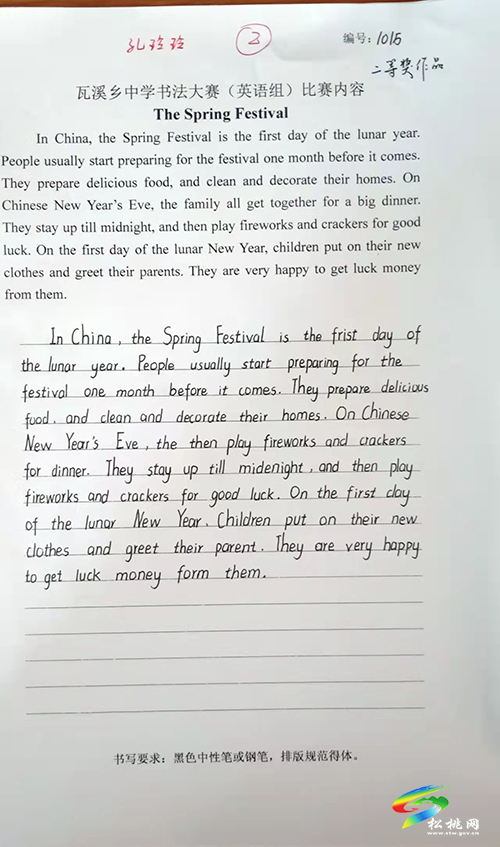 孔玲玲
2
编号: 1015
二等奖作品
瓦溪乡中学书法大赛（英语组）比赛内容
The Spring Festival
In China, the Spring Festival is the first day of the lunar year.
People usually start preparing for the festival one month before it comes.
They prepare delicious food, and clean and decorate their homes. On
Chinese New Year's Eve, the family all get together for a big dinner.
They stay up till midnight, and then play fireworks and crackers for good
luck. On the first day of the lunar New Year, children put on their new
clothes and greet their parents. They are very happy to get luck money
from them.
In China, the Spring Festival is the frist day of
the lunar year. People usually start preparing for the
festival one month before it comes. They prepare delicious
food, and clean and decorate their homes. On Chinese
New Year's Eve, the then play fireworks and crackers
for dinner. They stay up till midenight, and then play
fireworks and crackers for good luck. On the first day
of the lunar New Year. Children put on their new
clothes and greet their parent. They are very happy
to get luck money form them.
书写要求：黑色中性笔或钢笔，排版规范得体。
松桃网
www.stw.gov.cn